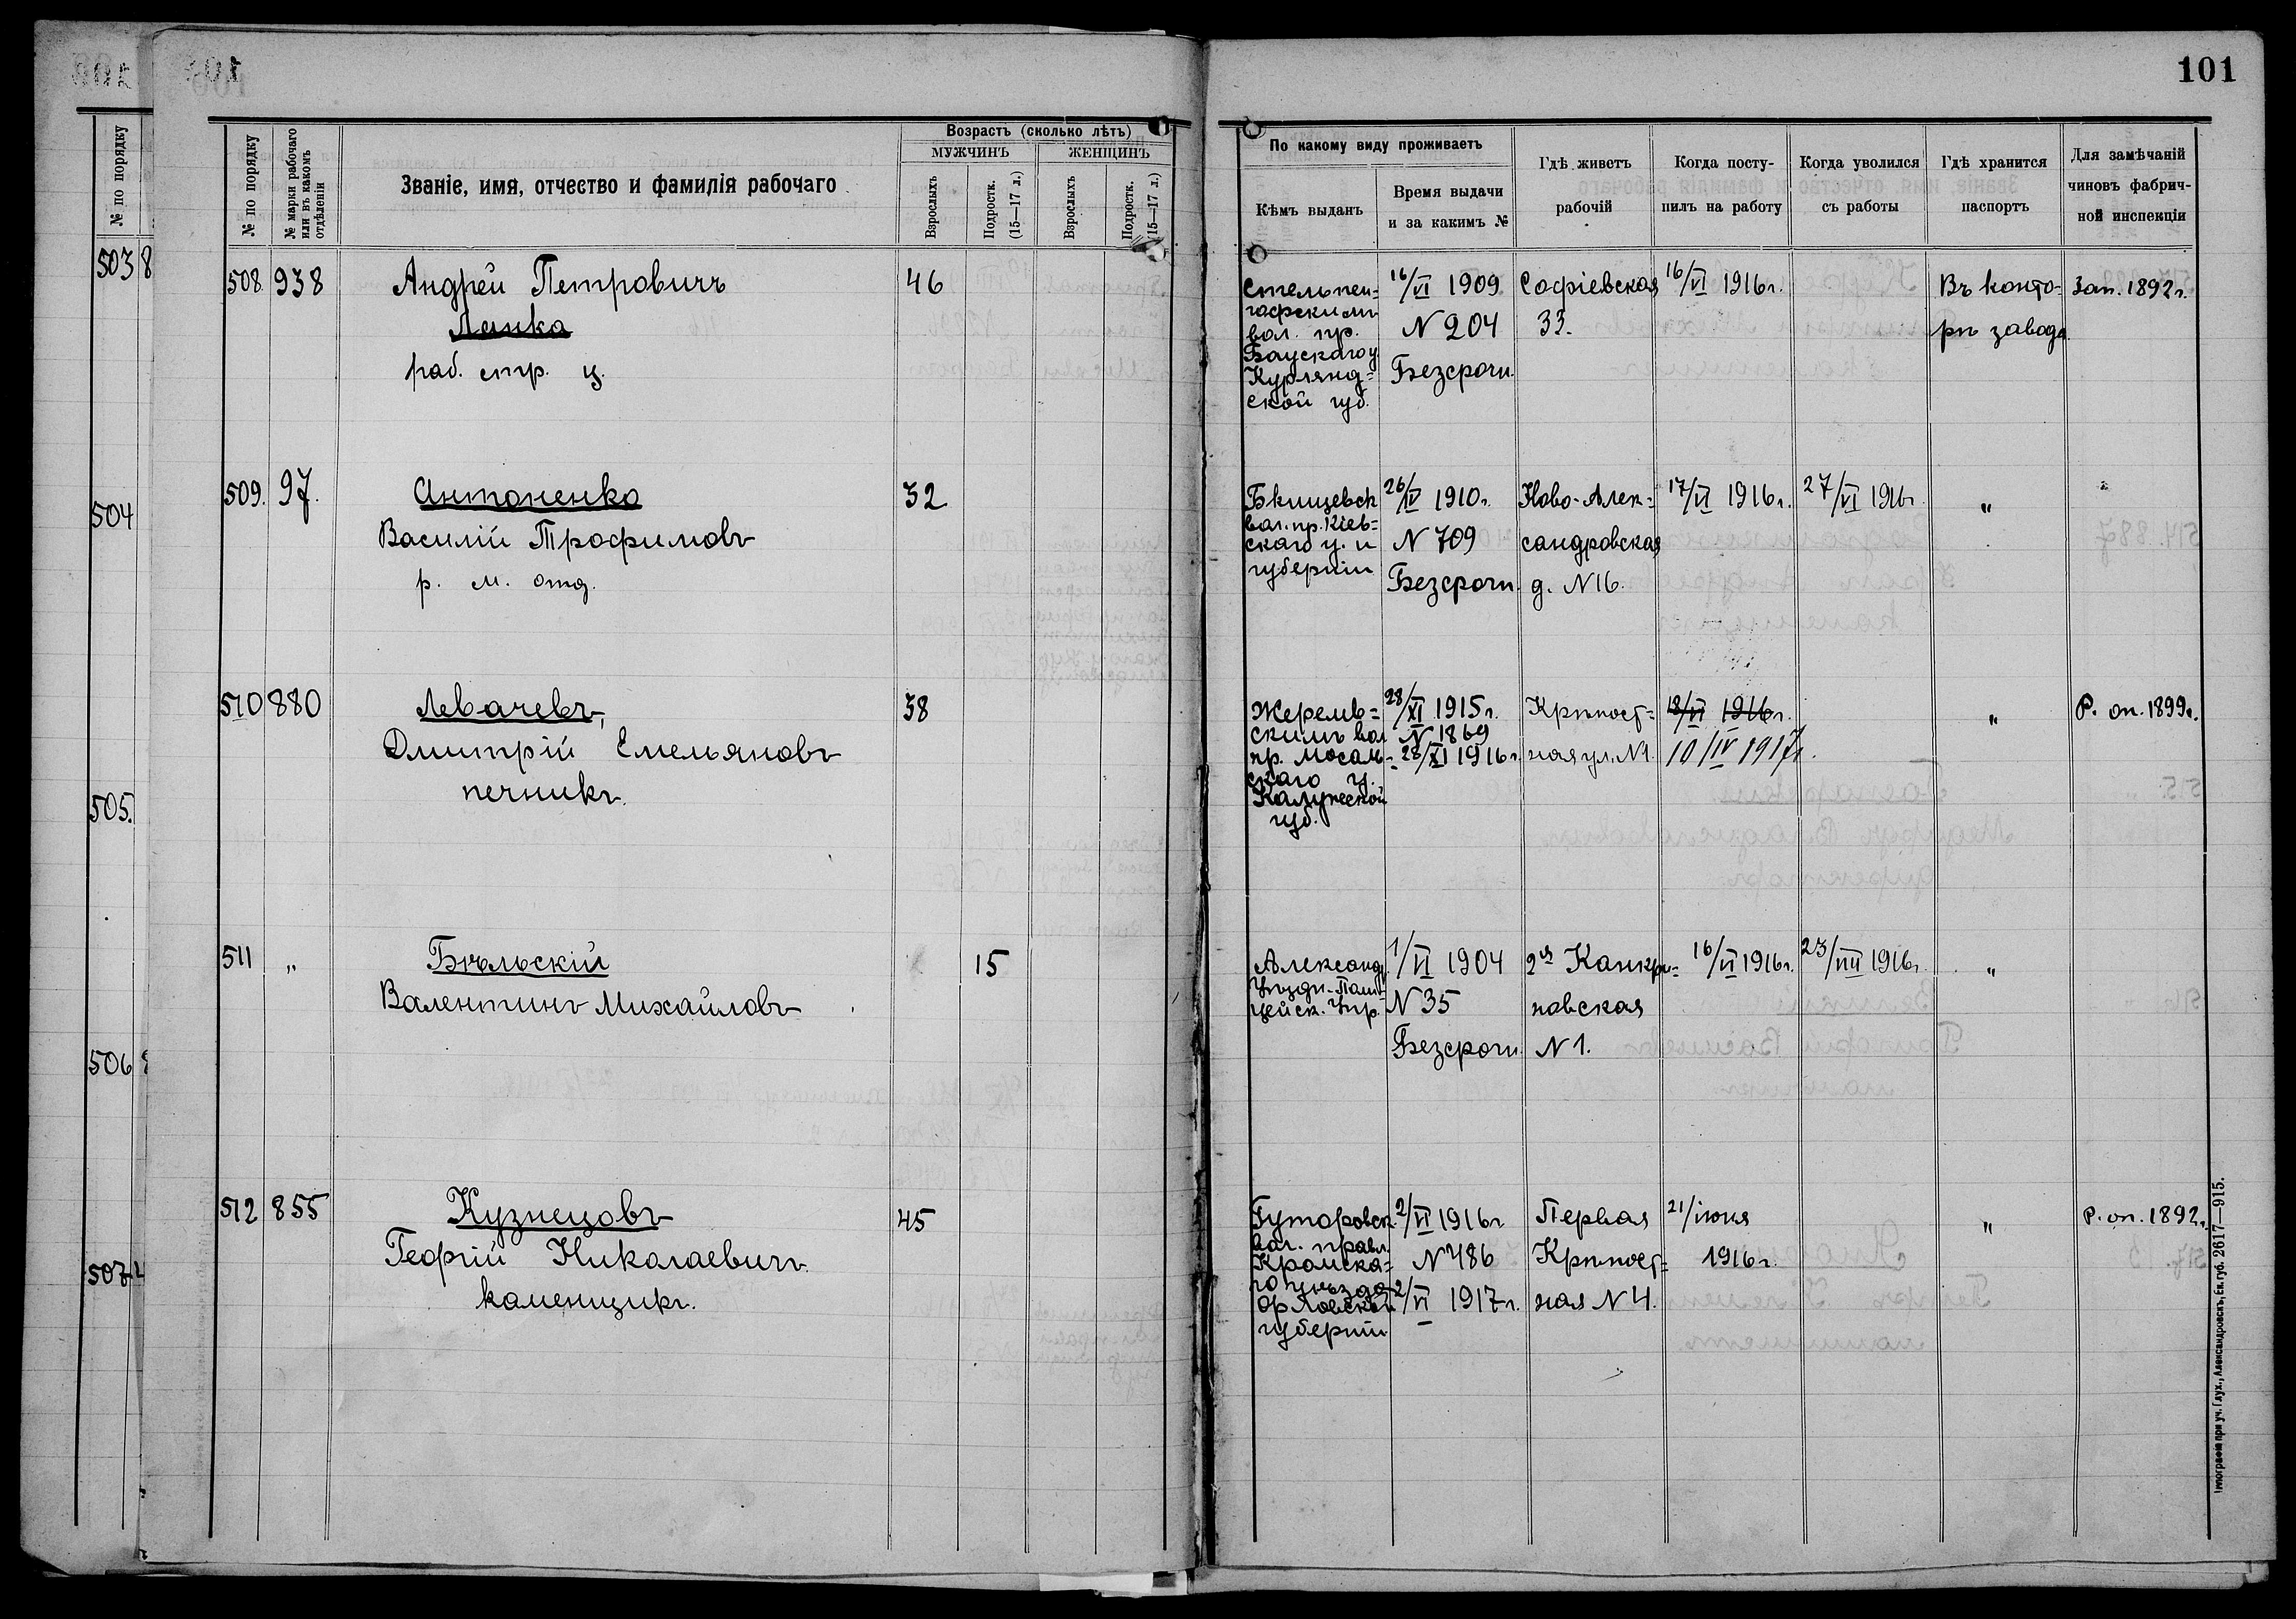 101
№ по порядку
503 8
504
505.
506 8
507
№ по порядку
№ марки рабочаго или въ какомъ отдѣленіи
Званіе, имя, отчество и фамилія рабочаго
Возрастъ (сколько лѣтъ)
МУЖЧИНЪ
ЖЕНЩИНЪ
Взрослыхъ
Подростк. (15—17 л.)
Взрослыхъ
Подростк. (15—17 л.)
По какому виду проживаетъ
Кѣмъ выданъ
Время выдачи
и за какимъ №
Гдѣ живетъ
рабочій
Когда посту-
пилъ на работу
Когда уволился
съ работы
Гдѣ хранится
паспортъ
Для замѣчаній
чиновъ фабрич-
ной инспекціи
508. 938
Андрей Петровичъ
Ленка
раб. стр. ц.
46
Стельпен=
гофскимъ
вол. пр.
Баускаго у.
Курлянд=
ской губ.
16/VI 1909
N 204
Безсрочн.
Софіевская
33.
16/VI 1916 г.
Въ конто-
рѣ завода
Зап. 1892 г.
509. 97.
Антоненко
Василій Трофимовъ
р. м. отд.
32
вол. пр. Кіев=
скаго у. и
губерніи
26/IV 1910 г.
N 709
Безсрочн.
Ново-Алек=
сандровская
д. N 16.
17/VI 1916 г.
27/VI 1916 г
"
510 880
Левачевъ,
Дмитрій Емельяновъ
печникъ.
38
Жерелев=
скимъ вол
пр. Мосаль=
скаго у.
Калужской
губ.
28/XI 1915 г.
N 1869
28/XI 1916 г.
Крѣпост=
ная ул. N 1.
18/VI 1916 г.
10/IV 1917 г.
"
Р. оп. 1899 г.
511 "
Бѣльскій
Валентинъ Михайловъ
15
Александр.
Уѣздн. Поли-
цейск. Упр.
1/VI 1904
N 35
Безсрочн.
2я Канкри=
новская
N 1.
16/VI 1916 г.
23/VIII 1916 г.
"
512 855
Кузнецовъ
Георгій Николаевичъ.
каменщикъ.
45
Гуторовск.
вол. правл.
Кромска=
го уѣзда
Орловской
губерніи
2/VI 1916 г
N 486
2/VI 1917 г.
Первая
Крѣпост=
ная N 4.
21/іюня
1916 г.
"
Р. оп. 1892 г.
Типографія при уч. Глух., Александровскъ, Ек. губ. 2617—915.